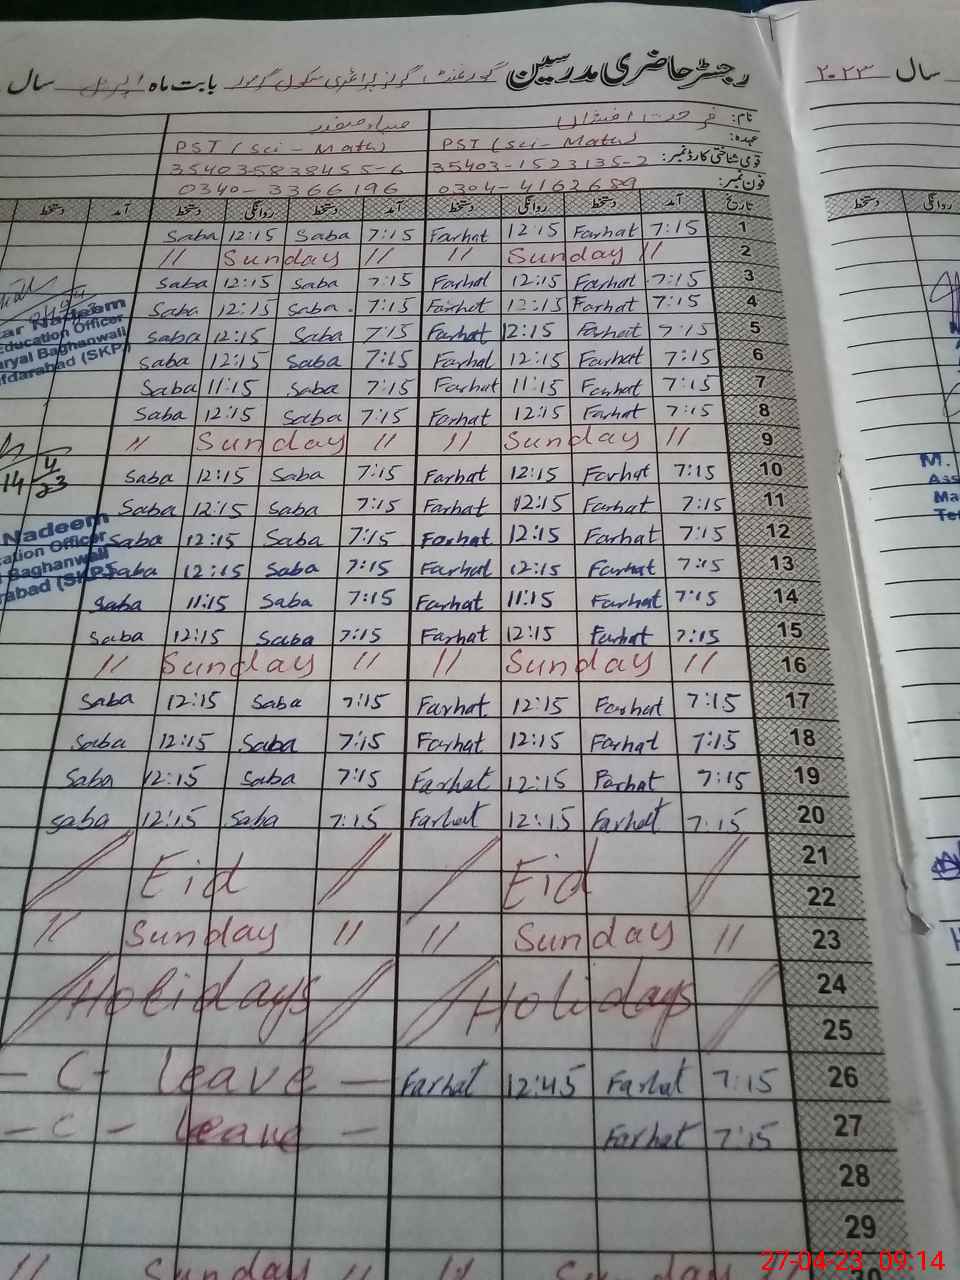 رجسٹر حاضری مدرسین گورنمنٹ گرلز پرائمری سکول بابت ماہ اپریل سال
سال ۲۰۲۳
نام: فرحت افشاں صباء صفدر
عہدہ: PST (Sci - Math) PST (Sci - Math)
قومی شناختی کارڈ نمبر: 35403-1523135-2 354035838455-6
فون نمبر: 0304-4162689 0340-3366196
تاریخ آمد دستخط روانگی دستخط آمد دستخط روانگی دستخط آمد دستخط
روانگی دستخط
1 7:15 Farhat 12:15 Farhat 7:15 Saba 12:15 Saba
2 // Sunday // // Sunday //
3 7:15 Farhat 12:15 Farhat 7:15 Saba 12:15 Saba
4 7:15 Farhat 12:15 Farhat 7:15 Saba 12:15 Saba
5 7:15 Farhat 12:15 Farhat 7:15 Saba 12:15 Saba
6 7:15 Farhat 12:15 Farhat 7:15 Saba 12:15 Saba
7 7:15 Farhat 11:15 Farhat 7:15 Saba 11:15 Saba
8 7:15 Farhat 12:15 Farhat 7:15 Saba 12:15 Saba
9 // Sunday // // Sunday //
10 7:15 Farhat 12:15 Farhat 7:15 Saba 12:15 Saba
11 7:15 Farhat 12:15 Farhat 7:15 Saba 12:15 Saba
12 7:15 Farhat 12:15 Farhat 7:15 Saba 12:15 Saba
13 7:15 Farhat 12:15 Farhat 7:15 Saba 12:15 Saba
14 7:15 Farhat 11:15 Farhat 7:15 Saba 11:15 Saba
15 7:15 Farhat 12:15 Farhat 7:15 Saba 12:15 Saba
16 // Sunday // // Sunday //
17 7:15 Farhat 12:15 Farhat 7:15 Saba 12:15 Saba
18 7:15 Farhat 12:15 Farhat 7:15 Saba 12:15 Saba
19 7:15 Farhat 12:15 Farhat 7:15 Saba 12:15 Saba
20 7:15 Farhat 12:15 Farhat 7:15 Saba 12:15 Saba
21
22 // Eid // // Eid //
23 // Sunday // // Sunday //
24
25 // Holidays // // Holidays //
26 7:15 Farhat 12:45 Farhat – C - leave –
27 7:15 Farhat – C - leave –
28
29
30 Sunday // // Sunday //
Nadeem
Education Officer
Baghanwali
(SKP)
14/4/23
Nadeem
Officer
Baghanwali
(SKP)
M.
27-04-23 09:14